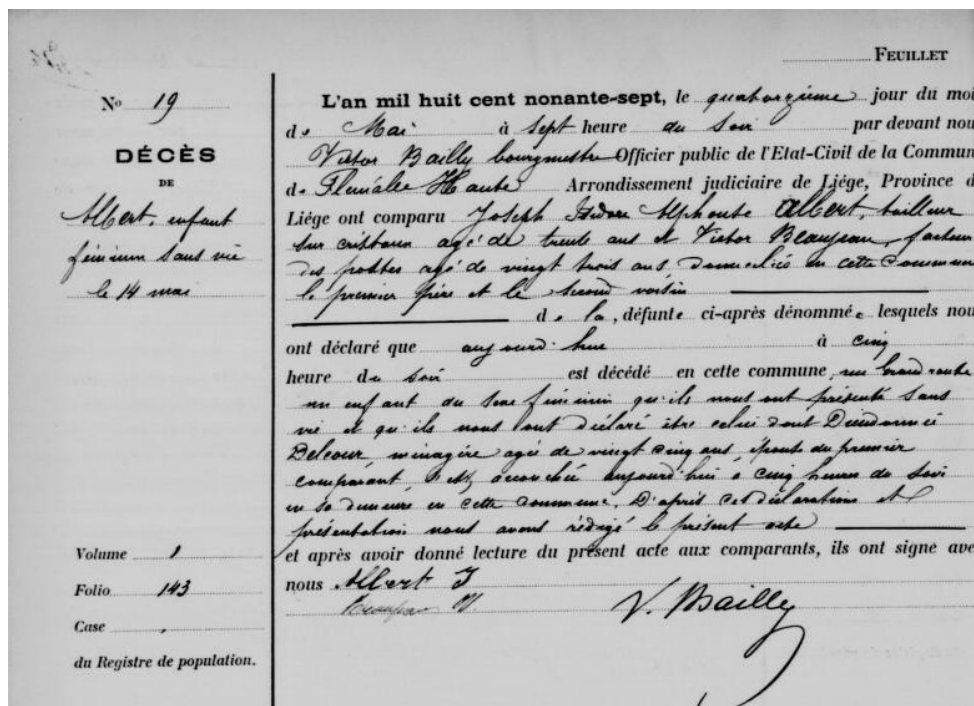 FEUILLET
N° 19
DÉCÈS
DE
Albert, enfant
féminin sans vie
le 14 mai
Volume 1
Folio 143
Case
du Registre de population.
L'an mil huit cent nonante-sept, le quatorzième jour du moi
de Mai à sept heure du soir par devant nou
Victor Bailly bourgmestre Officier public de l'Etat-Civil de la Commun
de Flémalle Haute Arrondissement judiciaire de Liége, Province d
Liége ont comparu Joseph Isidore Alphonse Albert, tailleur
sur cristaux agé de trente ans et Victor Beaujean, facteur
des postes agé de vingt trois ans domiciliés en cette commune
le premier père et le second voisin
de la, défunte ci-après dénommée lesquels nou
ont déclaré que aujourd'hui à cinq
heure du soir est décédé en cette commune, rue Grand route
un enfant du sexe féminin qu'ils nous ont présenté sans
vie et qu'ils nous ont déclaré être celui dont
Delcour, ménagère agée de vingt cinq ans, épouse du premier
comparant, est accouchée aujourd'hui à cinq heures du soir
en sa demeure en cette commune. D'après cet déclaration et
présentation nous avons rédigé le présent acte
et après avoir donné lecture du présent acte aux comparants, ils ont signé ave
nous Albert J
Beaujean V.
V. Bailly